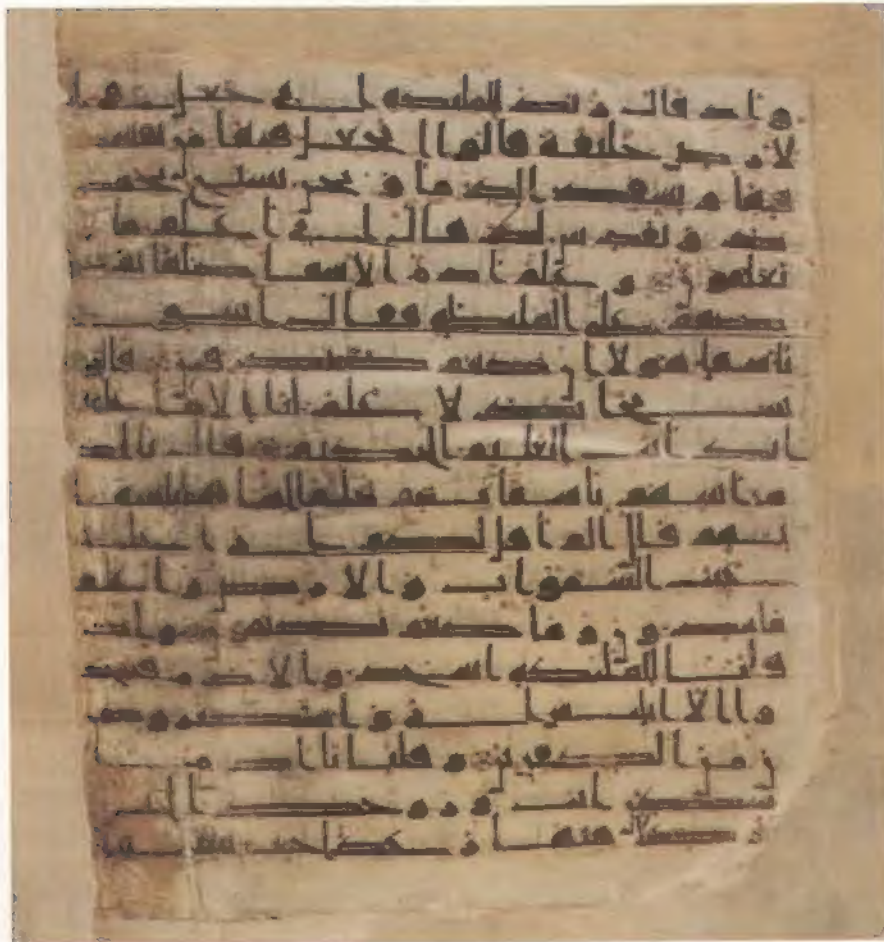 واذ قال ربك للمليكه انى جعل فى ا
لارض خليفة قالوا اتجعل فيها من يفسد
فيها ويسفك الدما ونحن نسبح بحم
دك ونقدس لك قال انى اعلم ما لا
تعلمون وعلم ادم الاسما كلها ثم عر
ضهم على المليكه فقال انبونى
باسما هولا ان كنتم صدقين قالو
سبحنك لا علم لنا الا ما علمتنا
انك انت العليم الحكيم قال ياد
م انبيهم باسمايهم فلما انباهم باسما
يهم قال الم اقل لكم انى اعلم
غيب السموات والارض واعلم
ما تبدون وما كنتم تكتمون واذ
قلنا للمليكه اسجدوا لادم فسجد
وا الا ابليس ابى واستكبر وكا
ن من الكفرين وقلنا يادم ا
سكن انت وزوجك الجنة
وكلا منها رغدا حيث شيتما